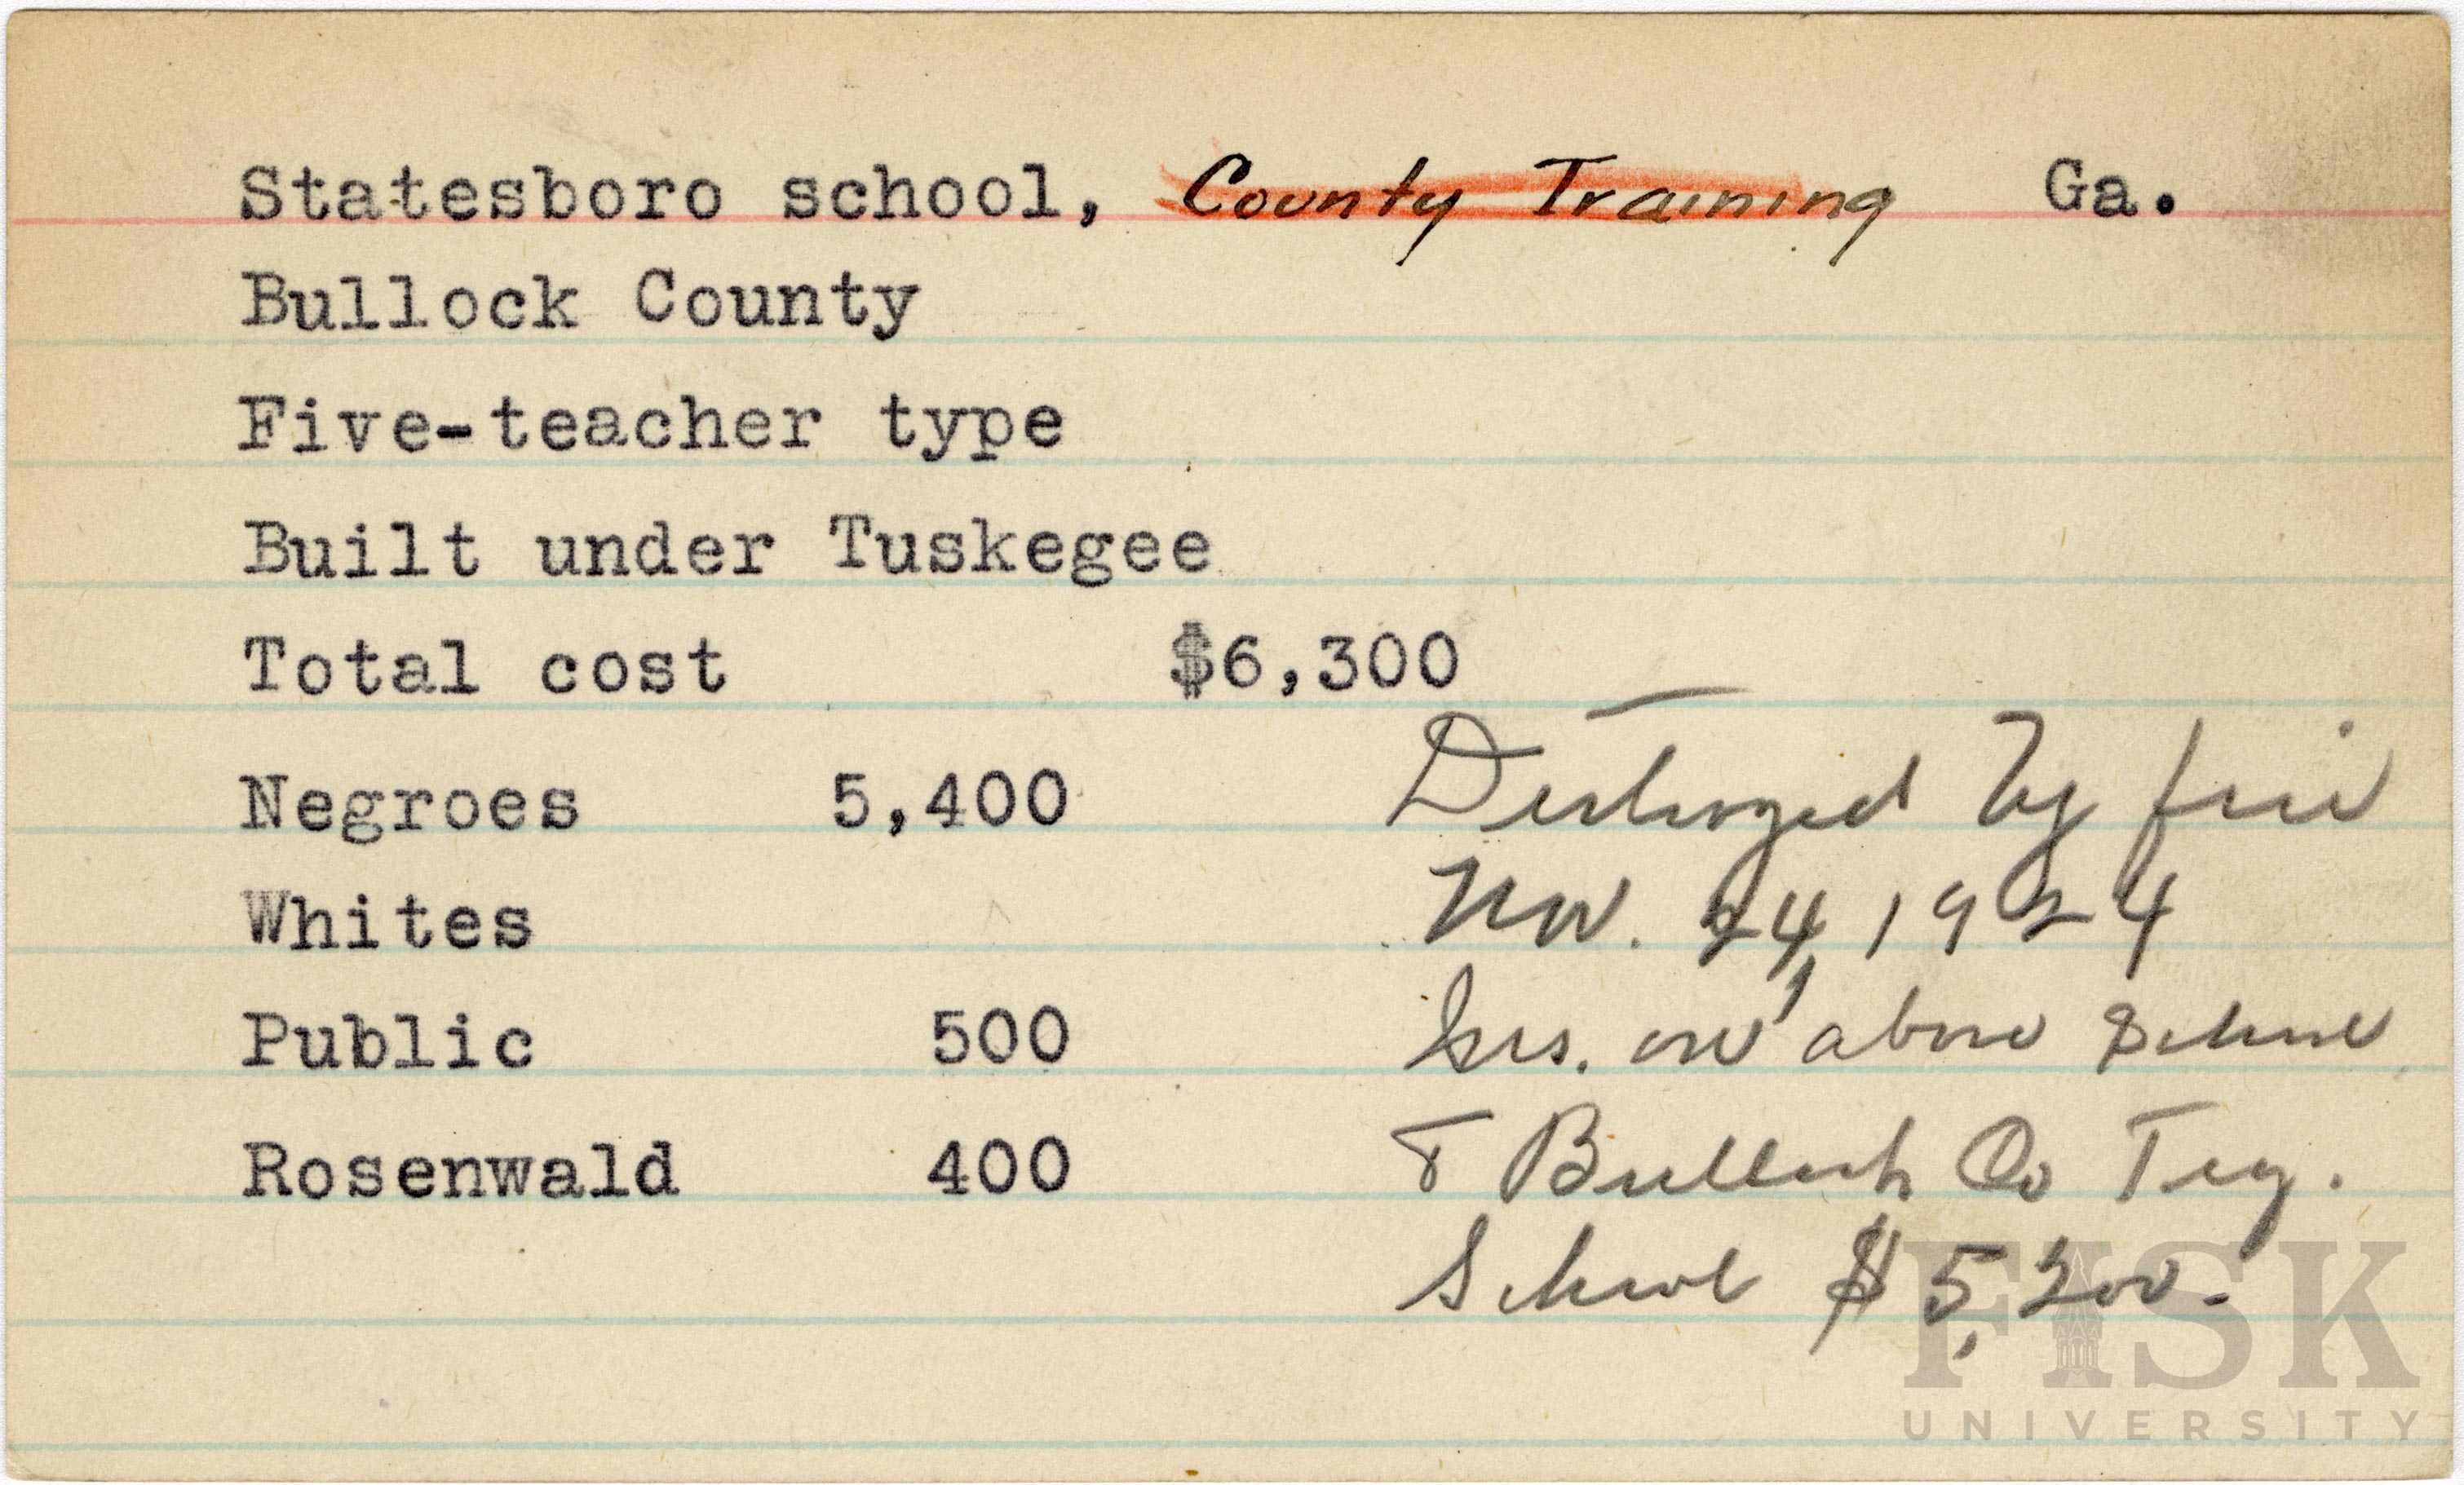 Statesboro school, County Training Ga.
Bullock County
Five-teacher type
Built under Tuskegee
Total cost $6,300
Negroes 5,400
Whites
Public 500
Rosenwald 400
Destroyed by fire
Nov. 24, 1924
Ins. on above School
& Bulloch Co Trg.
School $5,200.
FISK
UNIVERSITY